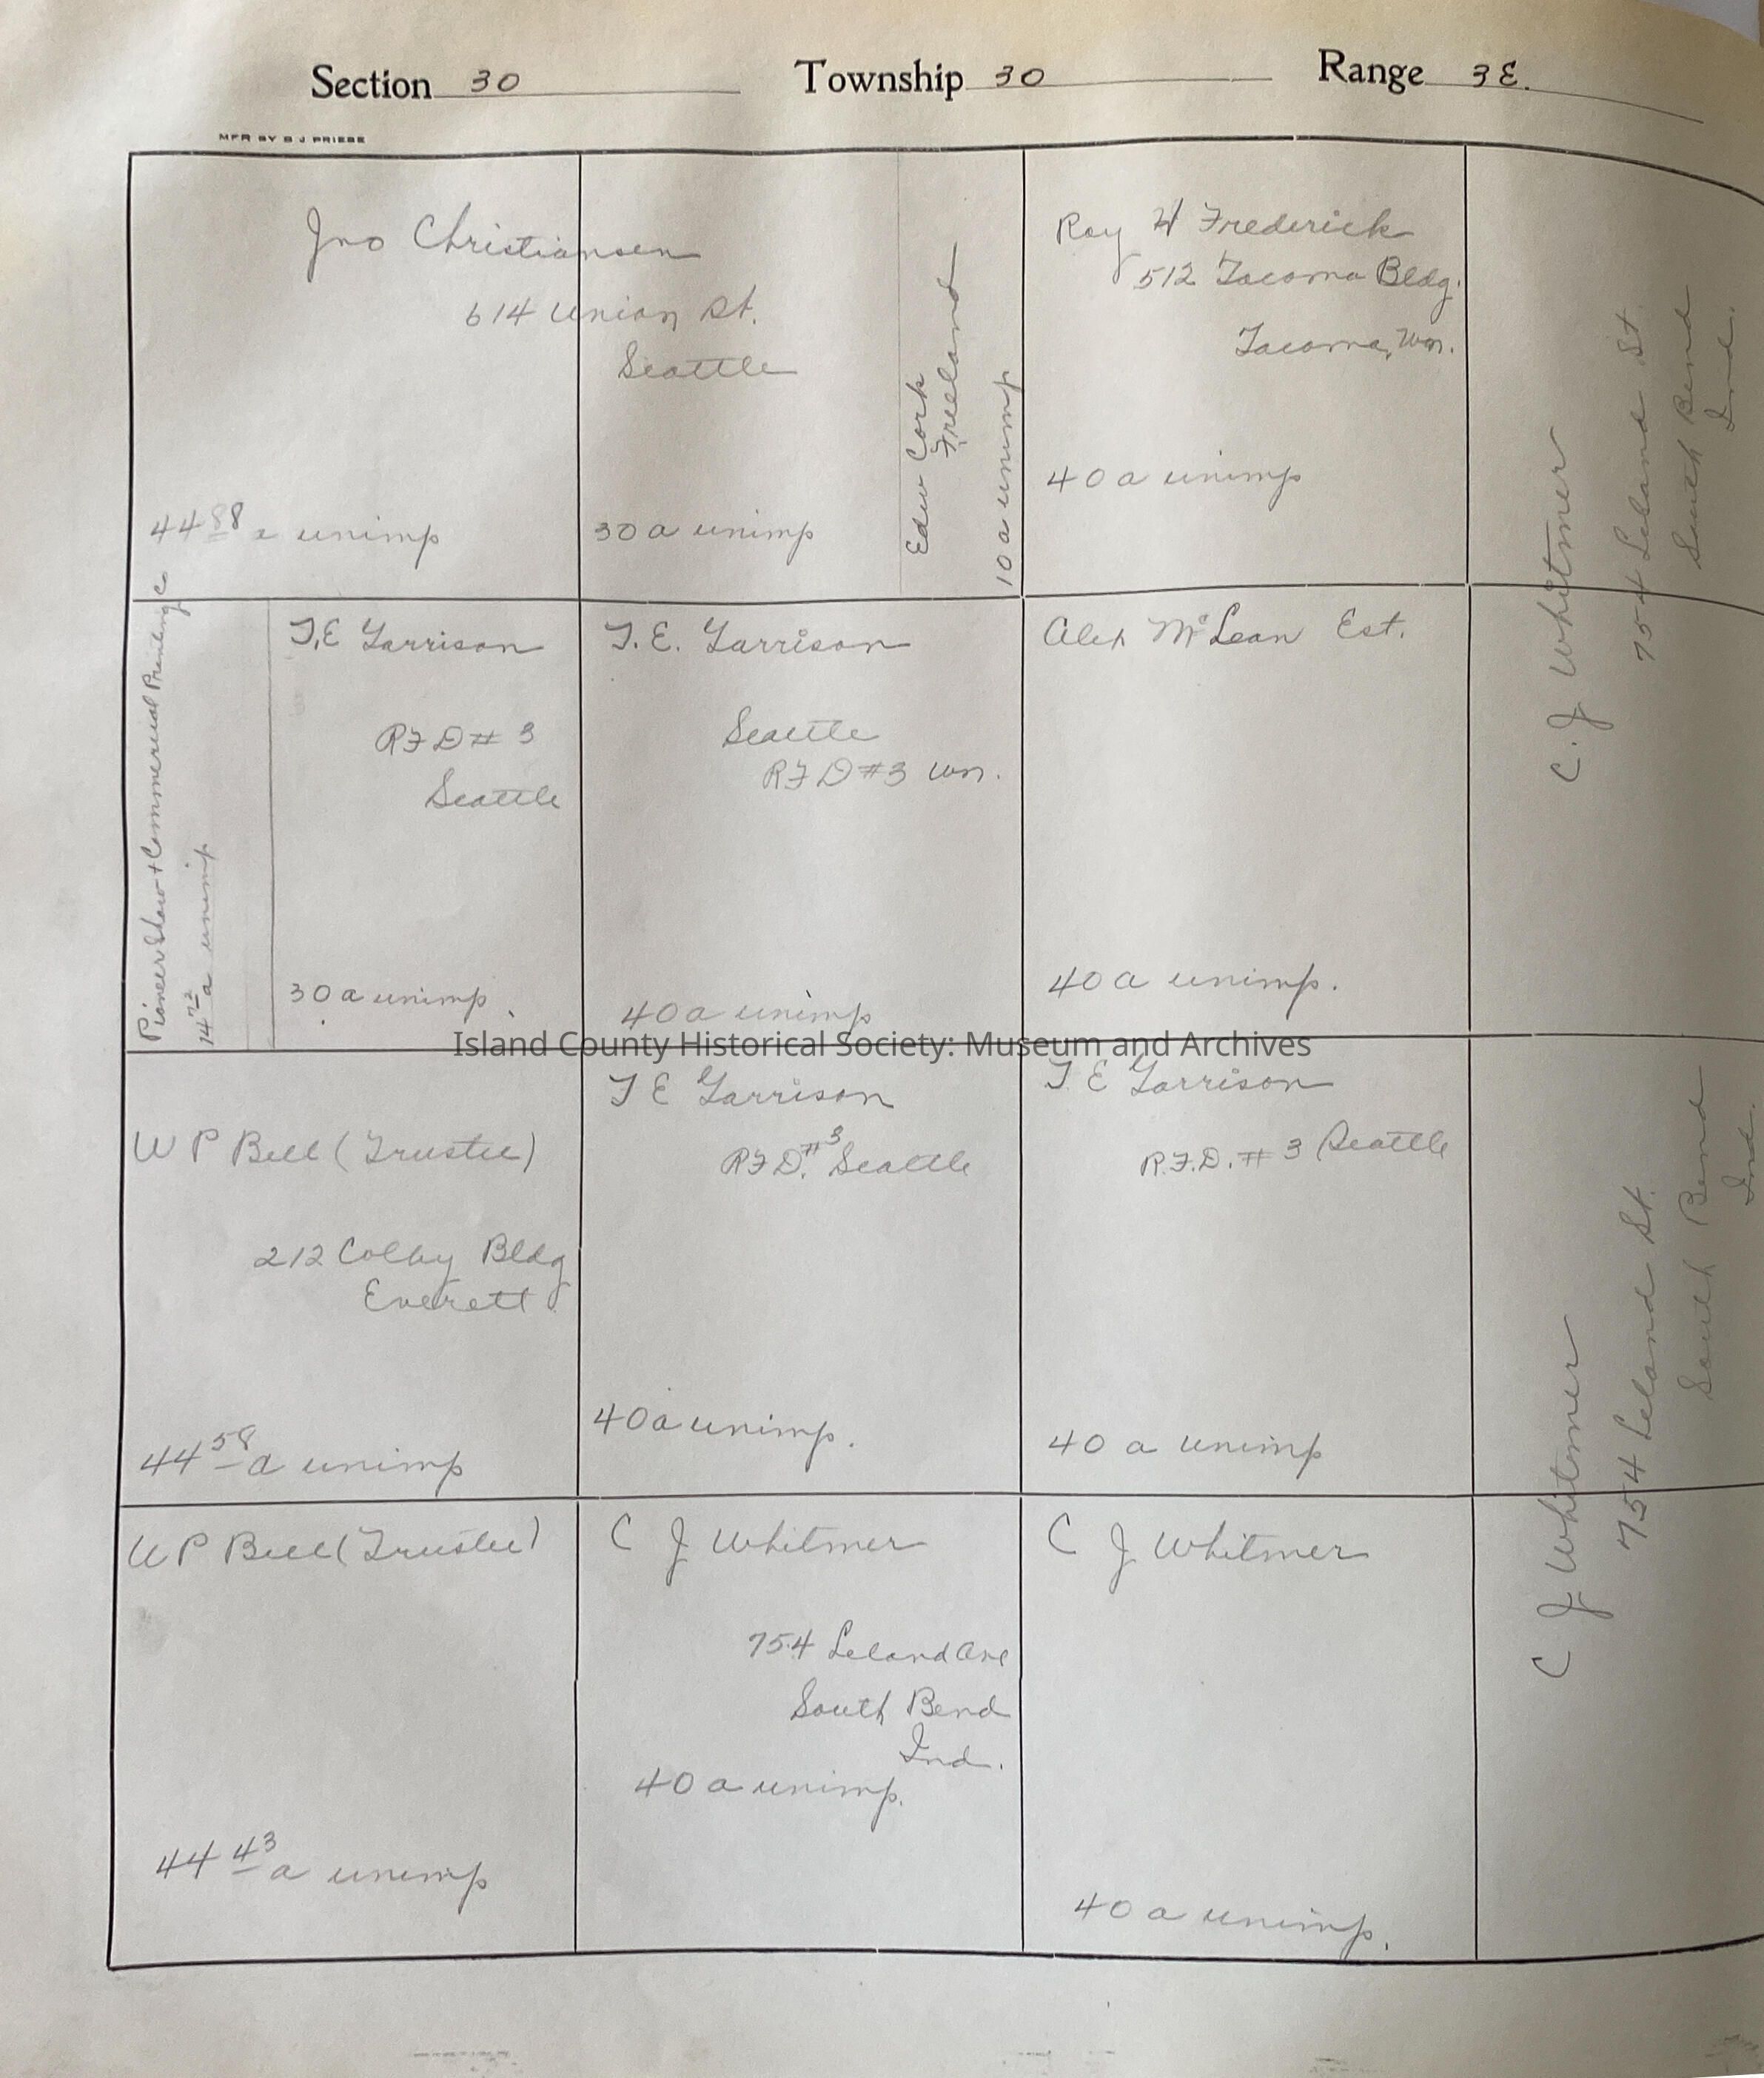 Section 30 Township 30 Range 3E.
MFR BY B J PRIEBE
Jno Christiansen
614 Union St.
Seattle
44 88 a unimp
30 a unimp
Edw Cork
Freeland
10 a unimp
Roy H Frederick
512 Tacoma Bldg.
Tacoma, Wn.
40 a unimp
C. J Whitmer
754 Leland St.
South Bend
Ind.
Pioneer Show + Commercial Printing C
14 72 a unimp
T.E Garrison
RFD # 3
Seattle
30 a unimp.
T. E. Garrison
Seattle
RFD #3 Wn.
40 a unimp
Alex McLean Est.
40 a unimp.
Island County Historical Society: Museum and Archives
W P Bell (Trustee)
212 Colby Bldg
Everett.
44 58 a unimp
T E Garrison
RFD. #3 Seattle
40 a unimp.
T. E Garrison
R.F.D. # 3 Seattle
40 a unimp
C J Whitmer
754 Leland St.
South Bend
Ind.
W P Bell (Trustee)
44 43 a unimp
C J Whitmer
754 Leland Ave
South Bend
Ind.
40 a unimp.
C J Whitmer
40 a unimp.